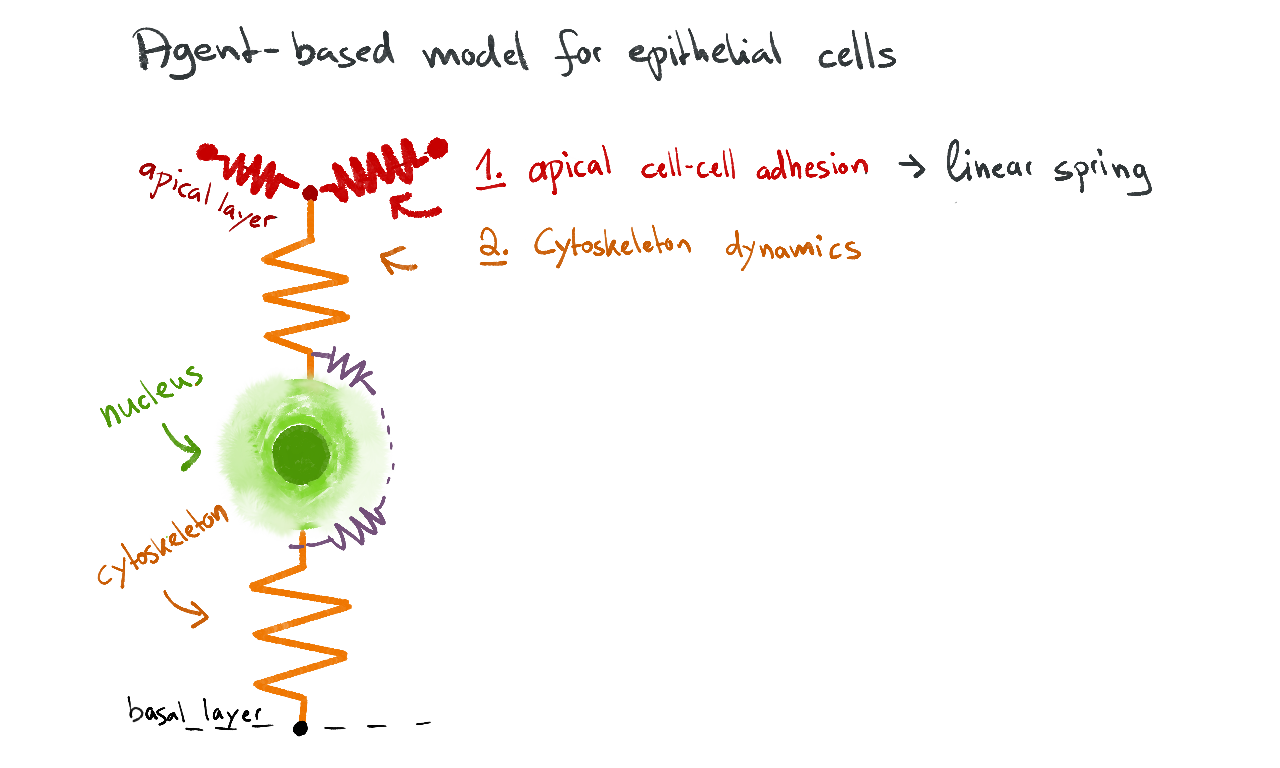 Agent-based model for epithelial cells
apical layer
1. apical cell-cell adhesion → linear spring
2. Cytoskeleton dynamics
nucleus
cytoskeleton
basal layer